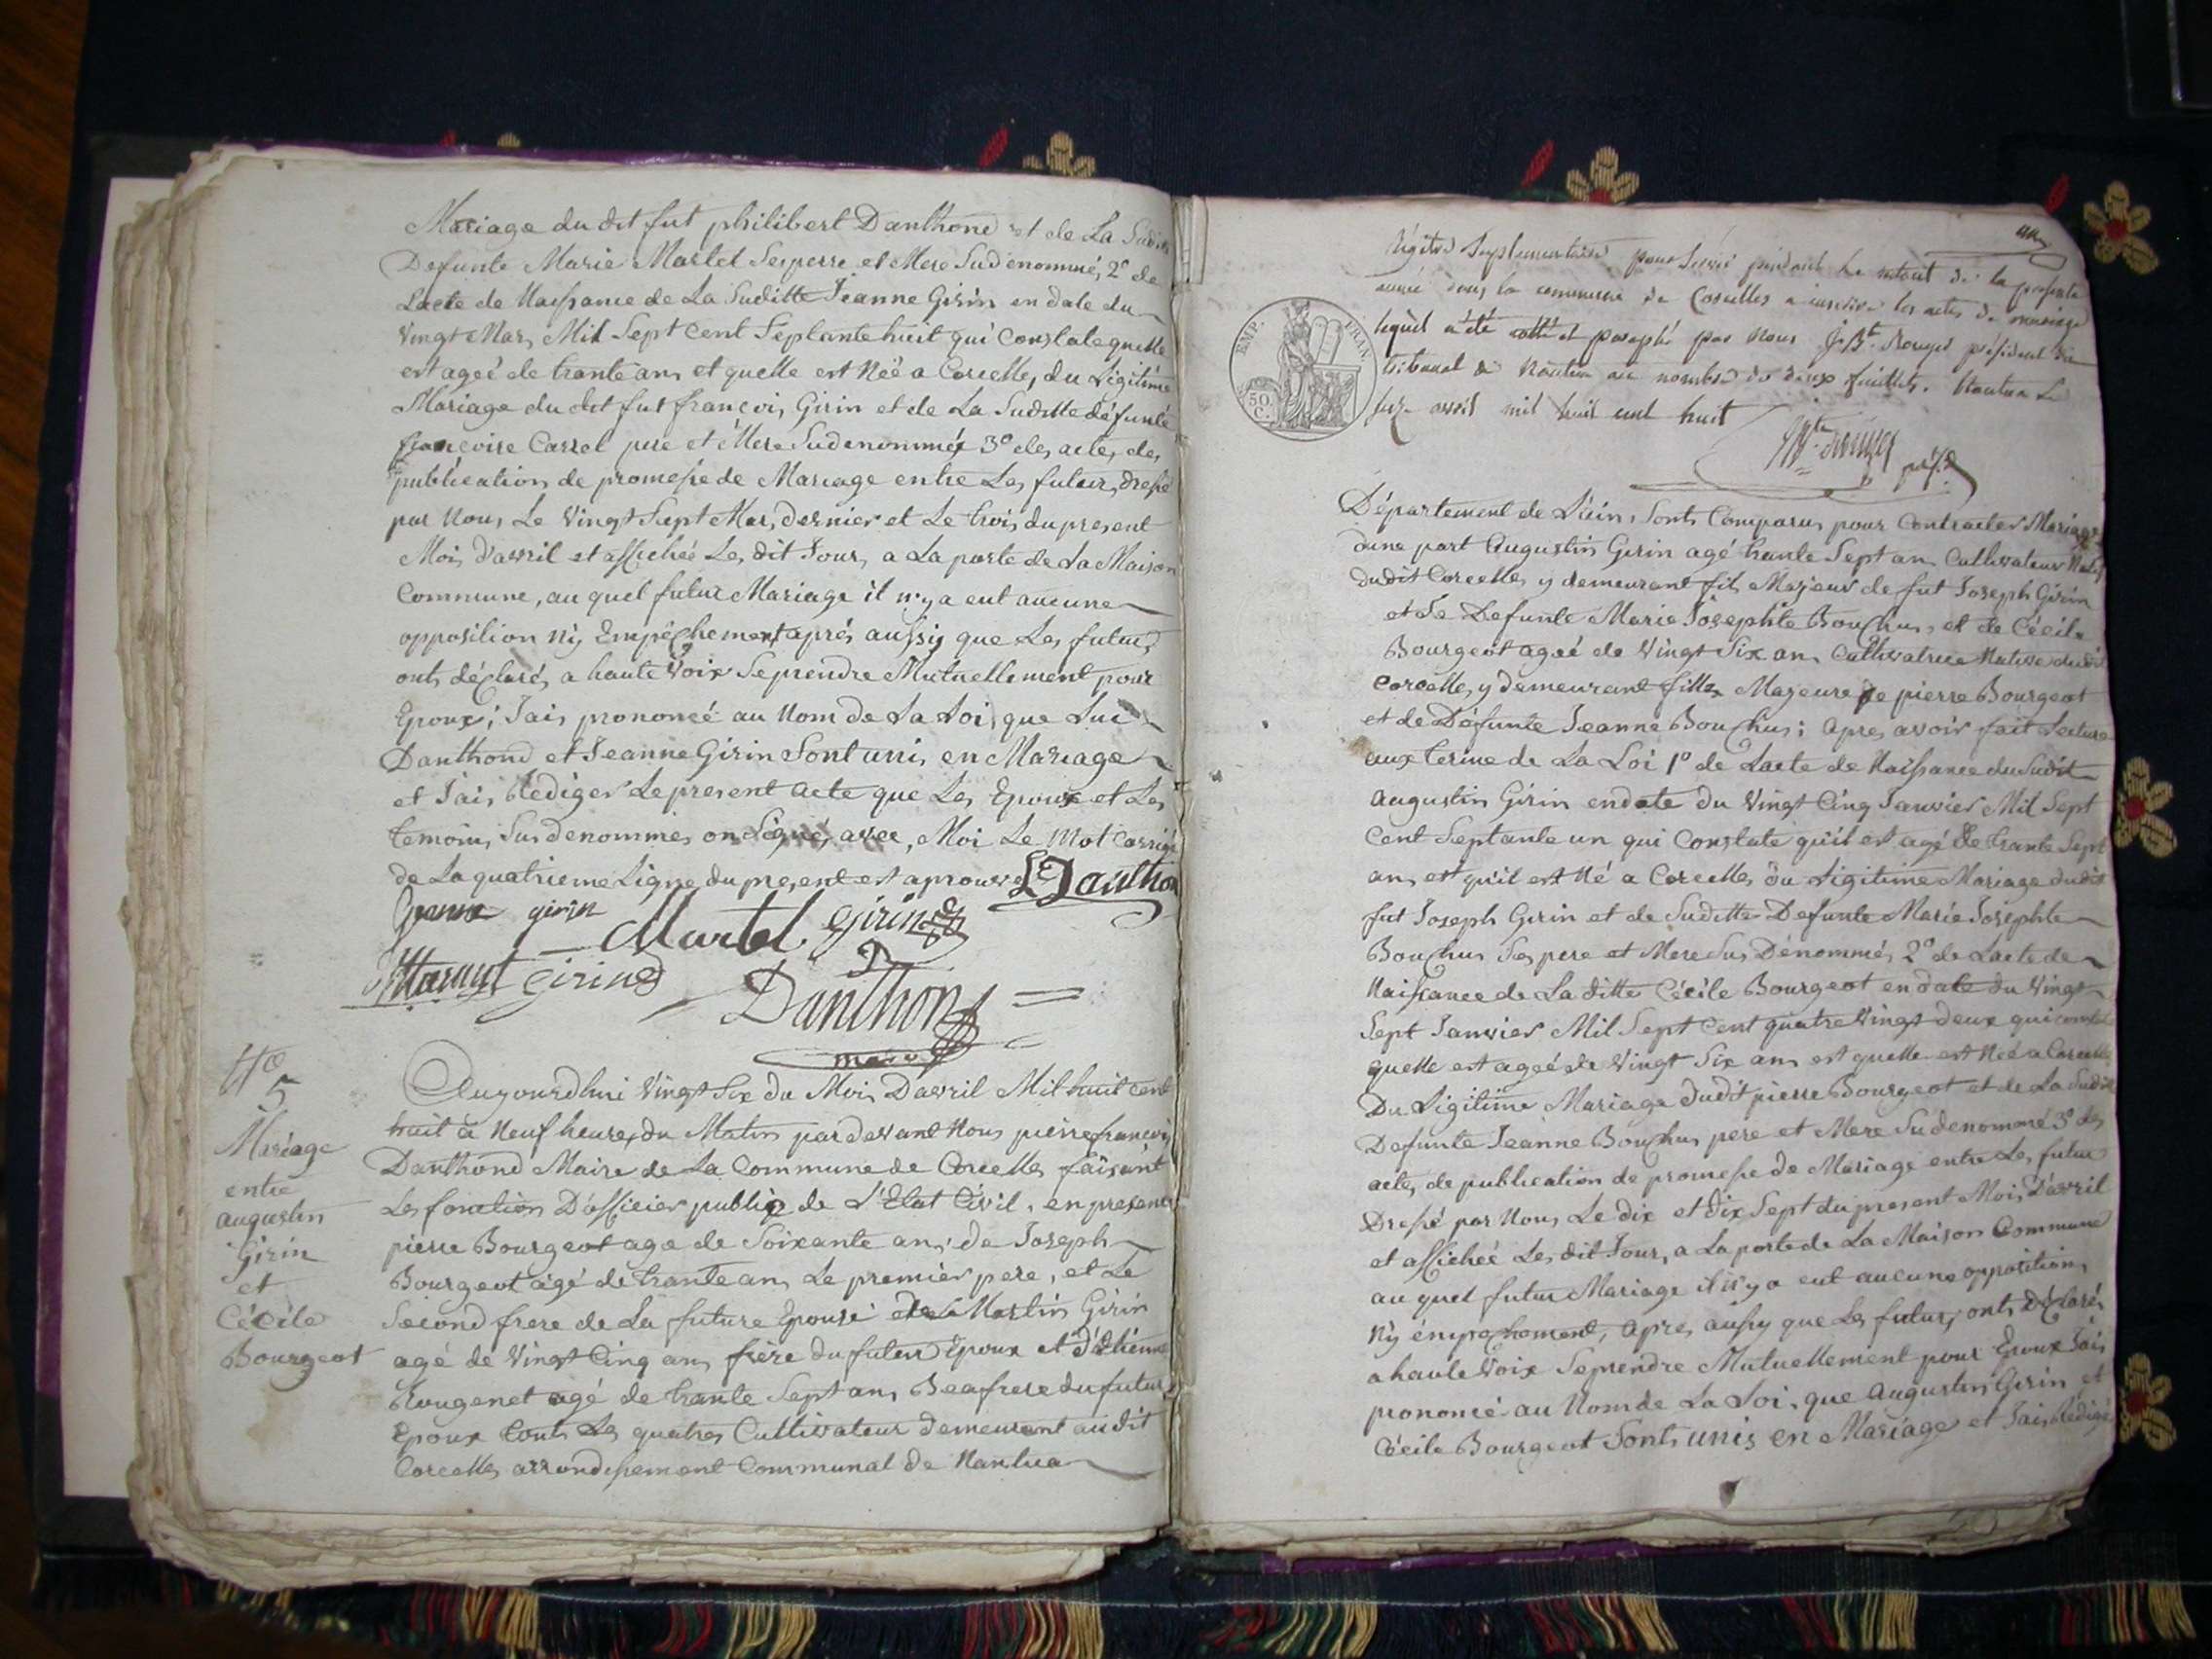 Mariage du dit fut philibert Danthond et de La Suditte
Defunte Marie Martel Ses perre et Mere Sudenommé, 2º de
Lacte de Naissance de La Suditte Jeanne Girin en date du
Vingt Mars Mil Sept Cent Septante huit qui Constate quelle
est ageé de trante ans et quelle est Néé a Corcelles, du Ligitime
Mariage du dit fut françois Girin et de La Suditte défunte
françoise Carrel pere et Mere Sudenommés 3º des actes des
publications de promesse de Mariage entre Les futurs, dressé
par Nous Le Vingt Sept Mars dernier et Le trois du present
Mois d'avril et affichéé Les dit Jours, a La porte de La Maison
Commune, au quel futur Mariage il n'y a eut aucune
opposition niy Empéchement aprés aussy que Les futurs
ont déclaré, a haute Voix Se prendre Mutuellement pour
Epoux; Jais prononcé au Nom de La Loi, que Luc
Danthond et Jeanne Girin Sont unis en Mariage
et Jais Rediger Le present acte que Les Epoux et Les
temoins Susdenommés on Signé, avec, Moi Le Mot Corrigé
de La quatrieme Ligne du present est aprouvé L Danthon
Jeanne girin Martel Girin
girin
Danthond
maire
Nº
5
Mariage
entre
augustin
Girin
et
Cécile
Bourgeot
Aujourdhui Vingt Six du Mois Davril Mil huit Cent
huit à Neuf heures du Matin par devant Nous pierre françois
Danthond Maire de La Commune de Corcelles faisant
Les fonction D'officier publiq de L'Etat Civil, en presence
pierre Bourgeot age de Soixante ans, de Joseph
Bourgeot agé de trante ans Le premier pere, et Le
Second frere de La future Epouse de Martin Girin
agé de Vingt Cinq ans frère du futur Epoux et d'étienne
Rougenet agé de trante Sept ans Beafrere du futur
Epoux tous Les quatres Cultivateur demeurant audit
Corcelles arrondissement Communal de Nantua
Régitre Suplementaire pour Servir pendant le restant de la presente
année dans la commune de Corcelles a inscrire les actes de mariage
lequel a été cotté et paraphé par nous J. Bte. Rouyer président du
tribunal de Nantua au nombre de deux feuillets. Nantua Le
seize avril mil huit cent huit
EMP. FRAN.
50 C.
Département de L'ain, Sont Comparus pour Contracter Mariage
dune part Augustin Girin agé trante Sept ans Cultivateur Natif
dudit Corcelles y demeurant fils Majeur de fut Joseph Girin
et de Defunte Marie Josephte Bouchus, et de Cécile
Bourgeot ageé de Vingt Six ans Cultivatrice Native dudit
Corcelles y demeurant fille Majeure de pierre Bourgeot
et de Défunte Jeanne Bouchus; apres avoir fait Lecture
aux terme de La Loi 1º de Lacte de Naissance du Sudit
Augustin Girin en date du Vingt Cinq Janvier Mil Sept
Cent Septante un qui Constate qu'il est agé de trante Sept
ans et qu'il est Né a Corcelles du Ligitime Mariage dudit
fut Joseph Girin et de Suditte Defunte Marie Josephte
Bouchus Ses pere et Mere Sus Dénommés 2º de Lacte de
Naissance de La ditte Cécile Bourgeot en date du Vingt
Sept Janvier Mil Sept Cent quatre Vingt deux qui constate
quelle est ageé de Vingt Six ans est quelle est Néé a Corcelle
Du Ligitime Mariage dudit pierre Bourgeot et de La Suditte
Defunte Jeanne Bouchus pere et Mere Sudenommé 3º des
actes de publication de promesse de Mariage entre Les futurs
Dressé par Nous Le dix et dix Sept du present Mois D'avril
et affichéé Les dit Jours, a La porte de La Maison Commune
au quel futur Mariage il n'y a eut aucune opposition
n'y émpechement, apres aussy que Les futurs ont déclaré
a haute Voix Se prendre Mutuellement pour Epoux Jais
prononcé au Nom de La Loi, que Augustin Girin et
Cécile Bourgeot Sont unis en Mariage et Jais Redigé